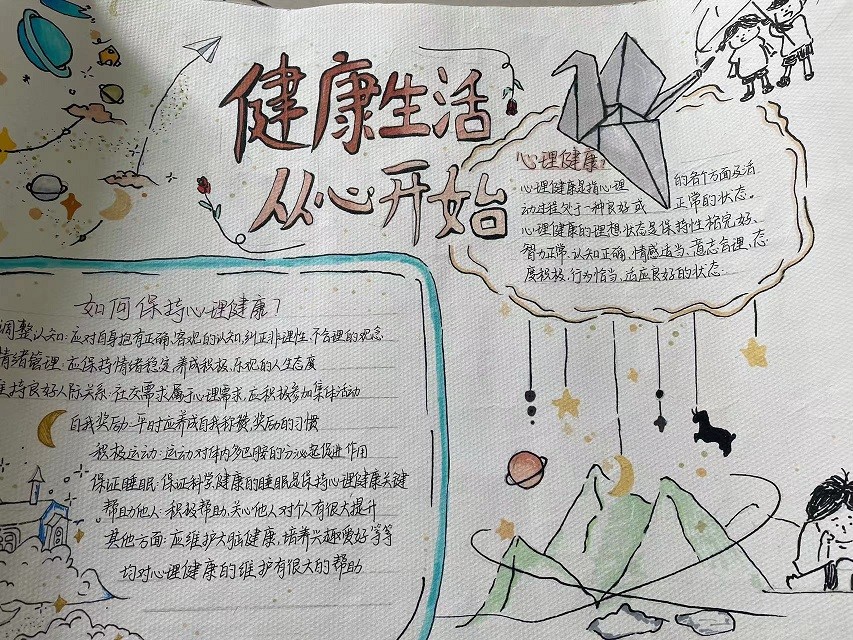 健康生活
从心开始
心理健康?
心理健康是指心理的各个方面及活
动过程处于一种良好或正常的状态。
心理健康的理想状态是保持性格完好、
智力正常、认知正确、情感适当、意志合理、态
度积极、行为恰当、适应良好的状态.
如何保持心理健康?
调整认知:应对自身抱有正确、客观的认知,纠正非理性、不合理的观念
情绪管理:应保持情绪稳定,养成积极、乐观的人生态度
维持良好人际关系:社交需求属于心理需求,应积极参加集体活动
自我奖励:平时应养成自我称赞、奖励的习惯
积极运动:运动对体内多巴胺的分泌起促进作用
保证睡眠:保证科学健康的睡眠是保持心理健康关键
帮助他人:积极帮助、关心他人对个人有很大提升
其他方面:应维护大脑健康,培养兴趣爱好等等
均对心理健康的维护有很大的帮助